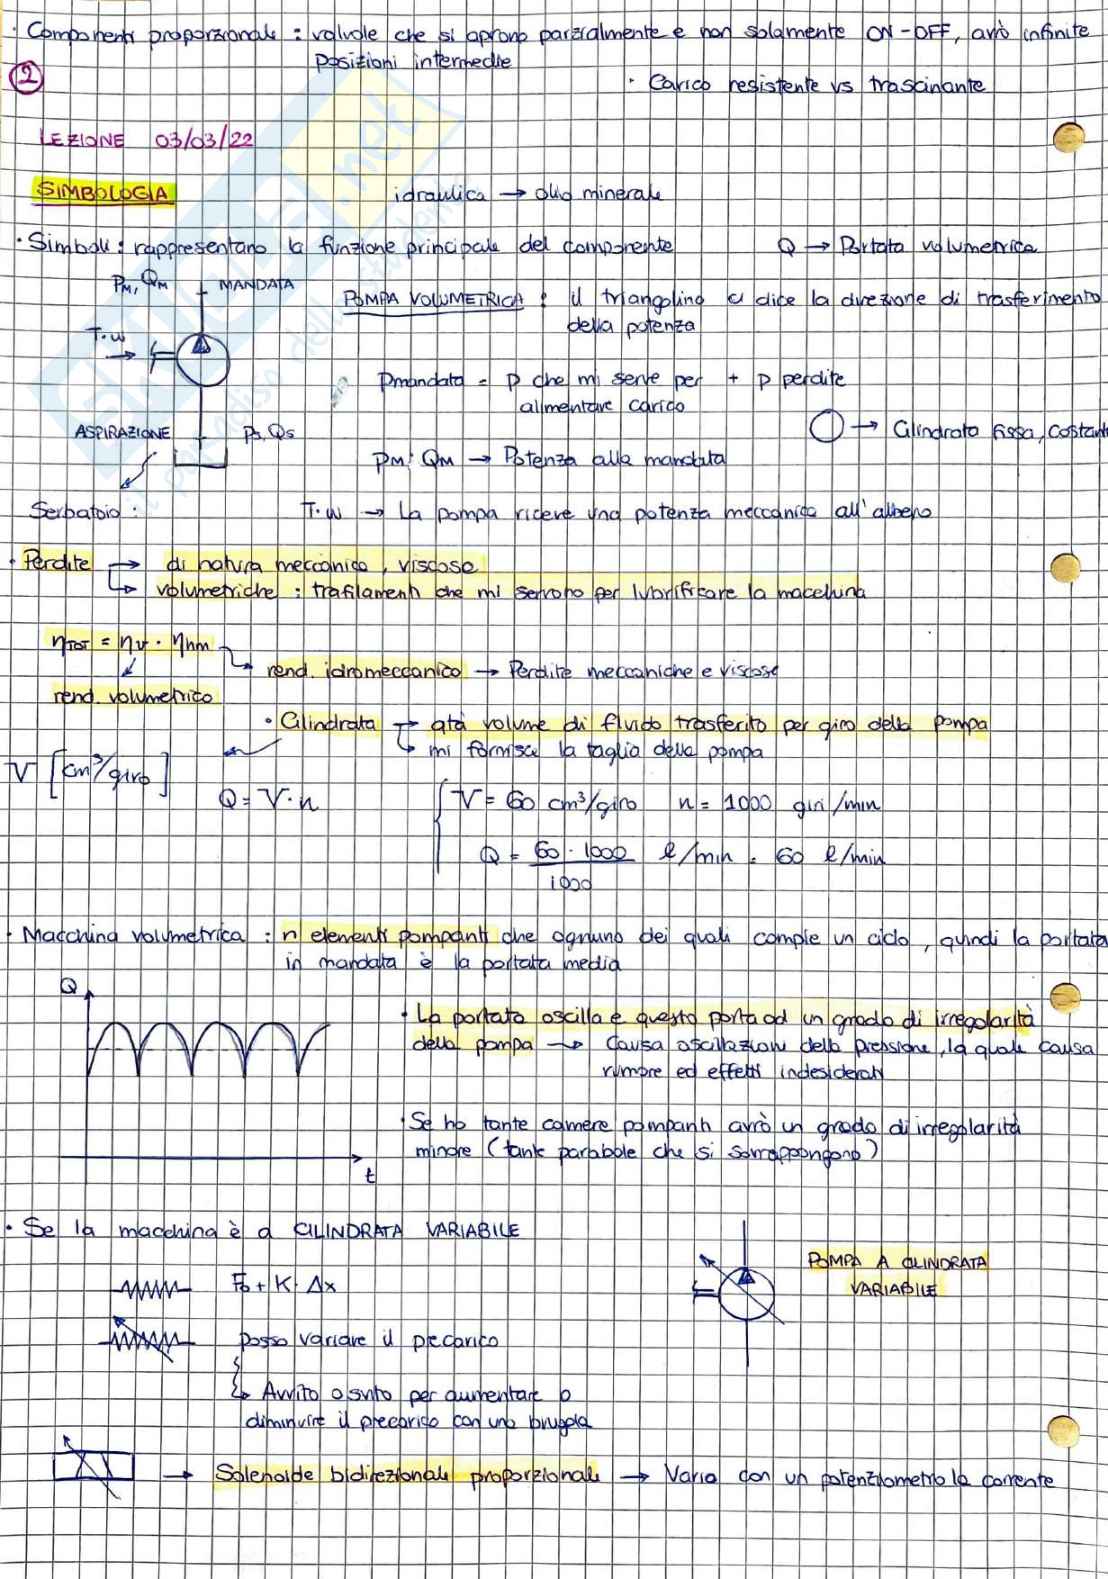 · Componenti proporzionali : valvole che si aprono parzialmente e non solamente ON-OFF, avrò infinite
posizioni intermedie
2
· Carico resistente vs trascinante
LEZIONE 03/03/22
SIMBOLOGIA
idraulica → olio minerale
· Simboli : rappresentano la funzione principale del componente
Q → Portata volumetrica
PM, QM MANDATA
POMPA VOLUMETRICA : il triangolino ci dice la direzione di trasferimento
della potenza
T·ω
Pmandata = p che mi serve per + p perdite
alimentare carico
→ Cilindrata fissa, costante
ASPIRAZIONE Ps, Qs
PM · QM → Potenza alla mandata
Serbatoio :
T·ω → La pompa riceve una potenza meccanica all'albero
· Perdite → di natura meccanica, viscose
↳ volumetriche : trafilamenti che mi servono per lubrificare la macchina
ηTOT = ηv · ηhm
↳ rend. idromeccanico → Perdite meccaniche e viscose
rend. volumetrico
· Cilindrata → qtà volume di fluido trasferito per giro della pompa
↳ mi fornisce la taglia della pompa
V [cm³/giro]
Q = V·n
V = 60 cm³/giro n = 1000 giri/min
Q = 60 · 1000 / 1000 l/min = 60 l/min
· Macchina volumetrica : n elementi pompanti che ognuno dei quali compie un ciclo, quindi la portata
in mandata è la portata media
Q
· La portata oscilla e questo porta ad un grado di irregolarità
della pompa → Causa oscillazioni della pressione, la quale causa
rumore ed effetti indesiderati
· Se ho tante camere pompanti avrò un grado di irregolarità
minore (tante parabole che si sovrappongono)
t
· Se la macchina è a CILINDRATA VARIABILE
POMPA A CILINDRATA
VARIABILE
F₀ + K · Δx
posso variare il precarico
↳ Avvito o svito per aumentare o
diminuire il precarico con una brugola
→ Solenoide bidirezionale proporzionale → Vario con un potenziometro la corrente